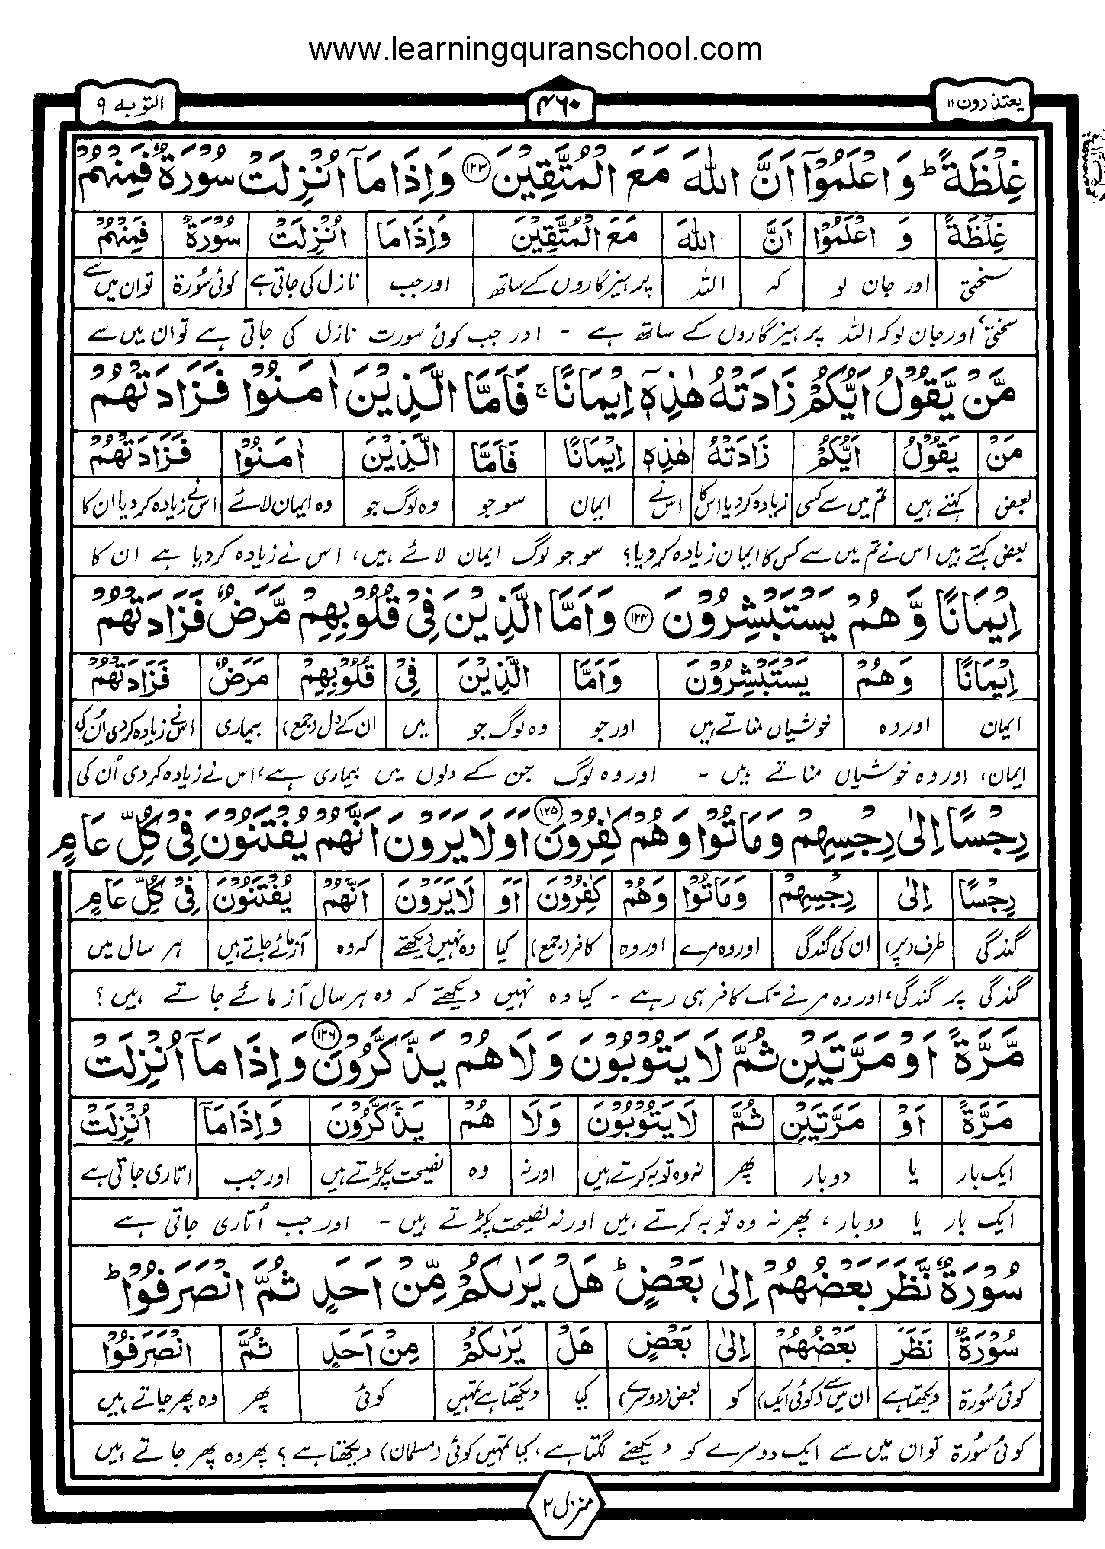 www.learningquranschool.com
یعتذرون ۱۱
۴۶۰
التوبة ۹
غِلْظَةً ؕ وَاعْلَمُوْۤا اَنَّ اللّٰهَ مَعَ الْمُتَّقِيْنَ ۝۱۲۳ وَاِذَا مَاۤ اُنْزِلَتْ سُوْرَةٌ فَمِنْهُمْ
غِلْظَةً وَ اعْلَمُوْۤا اَنَّ اللّٰهَ مَعَ الْمُتَّقِيْنَ وَاِذَامَا اُنْزِلَتْ سُوْرَةٌ فَمِنْهُمْ
سختی اور جان لو کہ اللہ پرہیزگاروں کے ساتھ اورجب نازل کی جاتی ہے کوئی سُورۃ توان میں سے
سختی، اورجان لوکہ اللہ پرہیزگاروں کے ساتھ ہے - اور جب کوئی سورت نازل کی جاتی ہے توان میں سے
مَّنْ يَّقُوْلُ اَيُّكُمْ زَادَتْهُ هٰذِهٖۤ اِيْمَانًا ۚ فَاَمَّا الَّذِيْنَ اٰمَنُوْا فَزَادَتْهُمْ
مَنْ يَقُوْلُ اَيُّكُمْ زَادَتْهُ هٰذِهٖ اِيْمَانًا فَاَمَّا الَّذِيْنَ اٰمَنُوْا فَزَادَتْهُمْ
بعض کہتے ہیں تم میں سے کسی زیادہ کردیا اسکا اسنے ایمان سو جو وہ لوگ جو وہ ایمان لائے اس نے زیادہ کردیا ان کا
بعض کہتے ہیں اس نے تم میں سے کس کا ایمان زیادہ کردیا؟ سو جو لوگ ایمان لائے ہیں، اس نے زیادہ کردیا ہے ان کا
اِيْمَانًا وَّهُمْ يَسْتَبْشِرُوْنَ ۝۱۲۴ وَاَمَّا الَّذِيْنَ فِيْ قُلُوْبِهِمْ مَّرَضٌ فَزَادَتْهُمْ
اِيْمَانًا وَهُمْ يَسْتَبْشِرُوْنَ وَاَمَّا الَّذِيْنَ فِيْ قُلُوْبِهِمْ مَرَضٌ فَزَادَتْهُمْ
ایمان اور وہ خوشیاں مناتے ہیں اور جو وہ لوگ جو میں ان کے دل (جمع) بیماری اسنے زیادہ کردی اُن کی
ایمان، اور وہ خوشیاں مناتے ہیں - اور وہ لوگ جن کے دلوں میں بیماری ہے، اس نے زیادہ کردی اُن کی
رِجْسًا اِلٰى رِجْسِهِمْ وَمَاتُوْا وَهُمْ كٰفِرُوْنَ ۝۱۲۵ اَوَلَا يَرَوْنَ اَنَّهُمْ يُفْتَنُوْنَ فِيْ كُلِّ عَامٍ
رِجْسًا اِلٰى رِجْسِهِمْ وَمَاتُوْا وَهُمْ كٰفِرُوْنَ اَوَ لَا يَرَوْنَ اَنَّهُمْ يُفْتَنُوْنَ فِيْ كُلِّ عَامٍ
گندگی طرف (پر) ان کی گندگی اور وہ مرے اور وہ کافر (جمع) کیا وہ نہیں دیکھتے کہ وہ آزمائے جاتے ہیں ہر سال میں
گندگی پر گندگی، اور وہ مرنے تک کافر ہی رہے - کیا وہ نہیں دیکھتے کہ وہ ہر سال آزمائے جاتے ہیں؟
مَّرَّةً اَوْ مَرَّتَيْنِ ثُمَّ لَا يَتُوْبُوْنَ وَلَا هُمْ يَذَّكَّرُوْنَ ۝۱۲۶ وَاِذَا مَاۤ اُنْزِلَتْ
مَرَّةً اَوْ مَرَّتَيْنِ ثُمَّ لَا يَتُوْبُوْنَ وَلَا هُمْ يَذَّكَّرُوْنَ وَاِذَامَاۤ اُنْزِلَتْ
ایک بار یا دو بار پھر نہ وہ توبہ کرتے ہیں اور نہ وہ نصیحت پکڑتے ہیں اور جب اتاری جاتی ہے
ایک بار یا دو بار، پھر نہ وہ توبہ کرتے ہیں اور نہ نصیحت پکڑتے ہیں - اور جب اُتاری جاتی ہے
سُوْرَةٌ نَّظَرَ بَعْضُهُمْ اِلٰى بَعْضٍ ؕ هَلْ يَرٰىكُمْ مِّنْ اَحَدٍ ثُمَّ انْصَرَفُوْا ؕ
سُوْرَةٌ نَظَرَ بَعْضُهُمْ اِلٰى بَعْضٍ هَلْ يَرٰىكُمْ مِنْ اَحَدٍ ثُمَّ انْصَرَفُوْا
کوئی سُورۃ دیکھتا ہے ان میں سے (کوئی ایک) کو بعض (دوسرے) کیا دیکھتا ہے تمہیں کوئی پھر وہ پھر جاتے ہیں
کوئی سُورۃ توان میں سے ایک دوسرے کو دیکھنے لگتا ہے، کیا تمہیں کوئی (مسلمان) دیکھتا ہے؟ پھر وہ پھر جاتے ہیں
منزل ۲